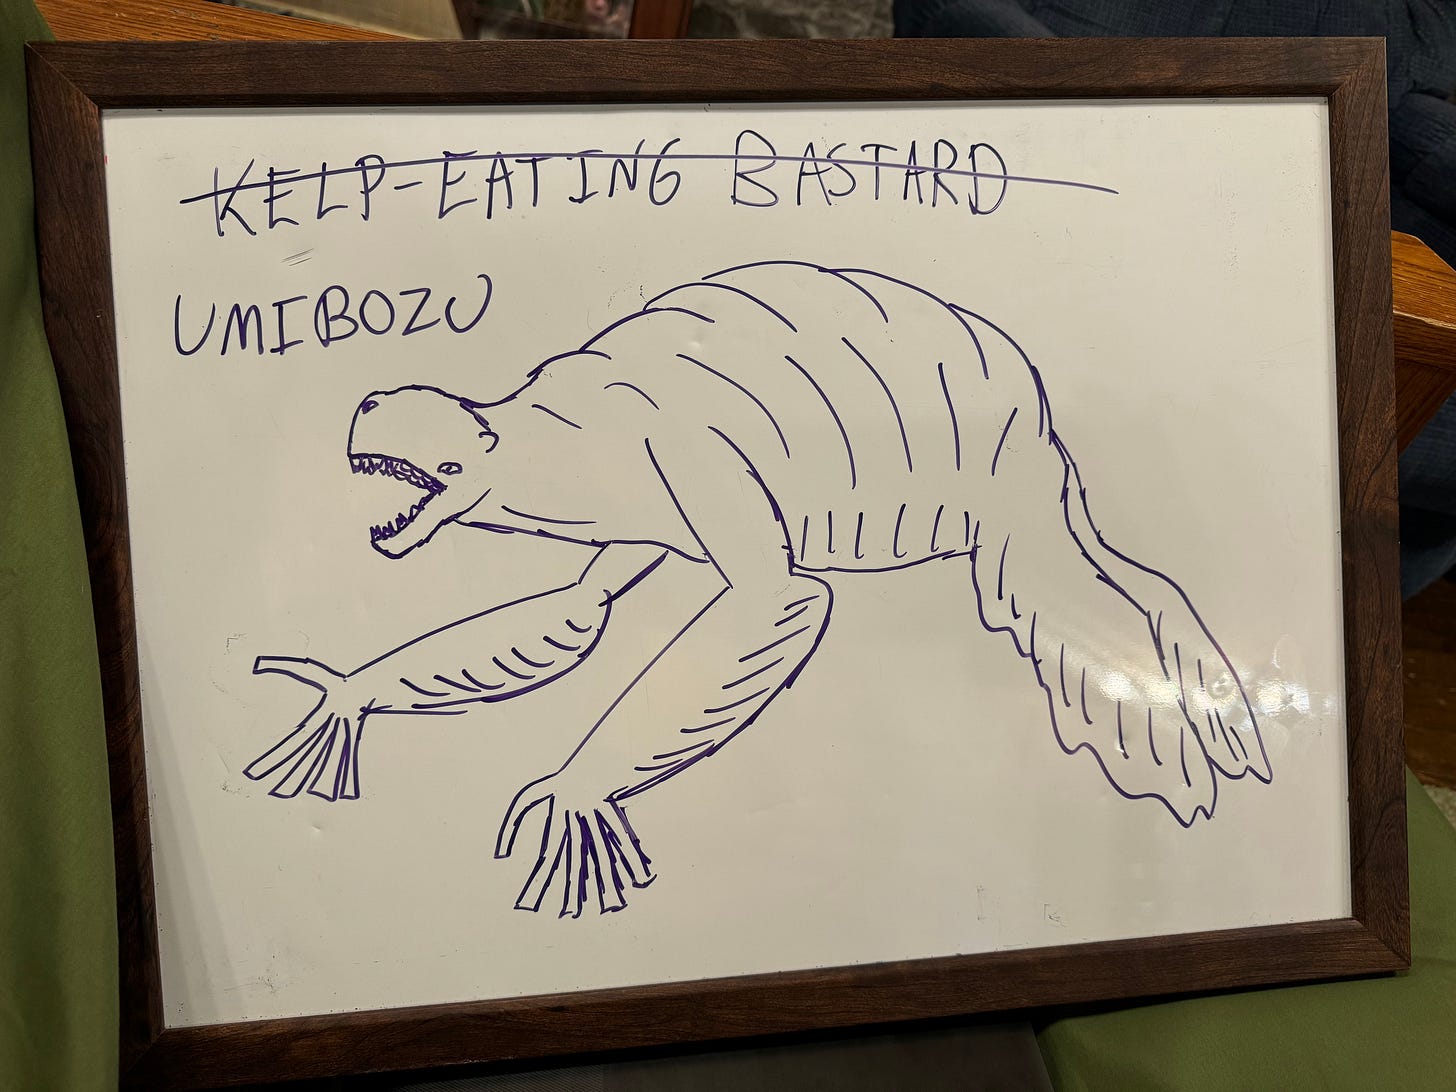 KELP-EATING BASTARD
UMIBOZU